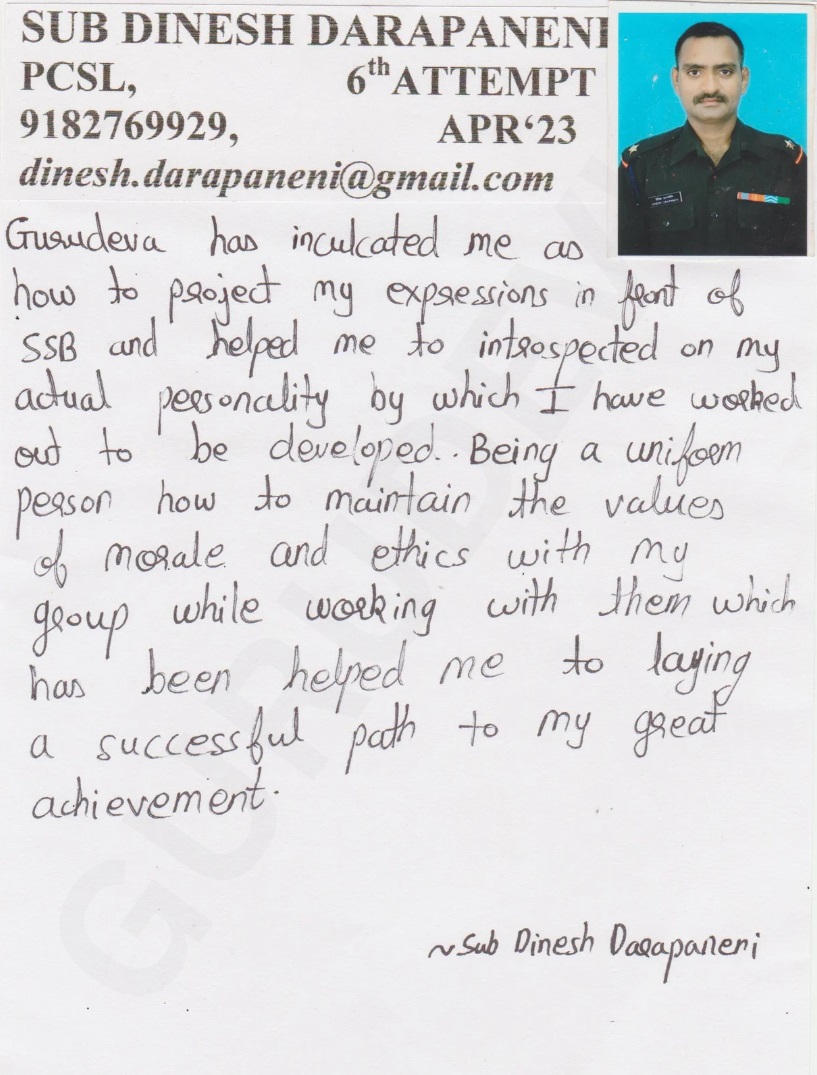 SUB DINESH DARAPANENI
PCSL, 6th ATTEMPT
9182769929, APR‘23
dinesh.darapaneni@gmail.com
Gurudeva has inculcated me as
how to project my expressions in front of
SSB and helped me to introspected on my
actual personality by which I have worked
out to be developed.. Being a uniform
person how to maintain the values
of morale and ethics with my
group while working with them which
has been helped me to laying
a successful path to my great
achievement.
~Sub Dinesh Darapaneni